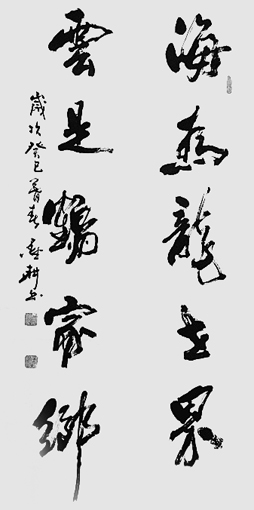 海為龍世界
雲是鶴家鄉
歲次癸巳暮春